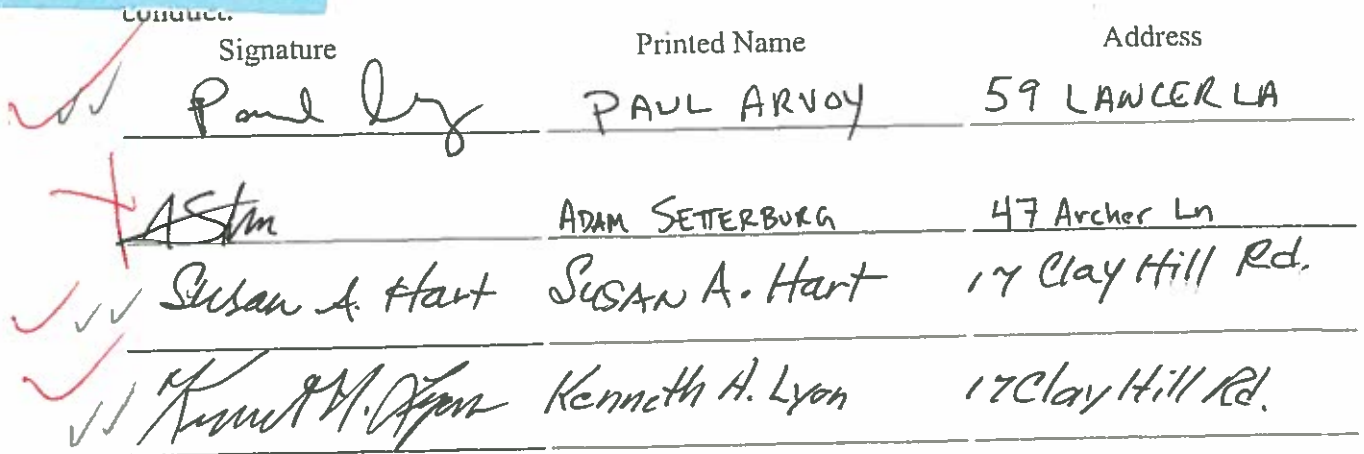 conduct.
Signature Printed Name Address
Paul PAUL ARVOY 59 LANCER LA
ADAM SETTERBURG 47 Archer Ln
Susan A. Hart SUSAN A. Hart 17 Clay Hill Rd.
Kenneth H. Lyon Kenneth H. Lyon 17 Clay Hill Rd.